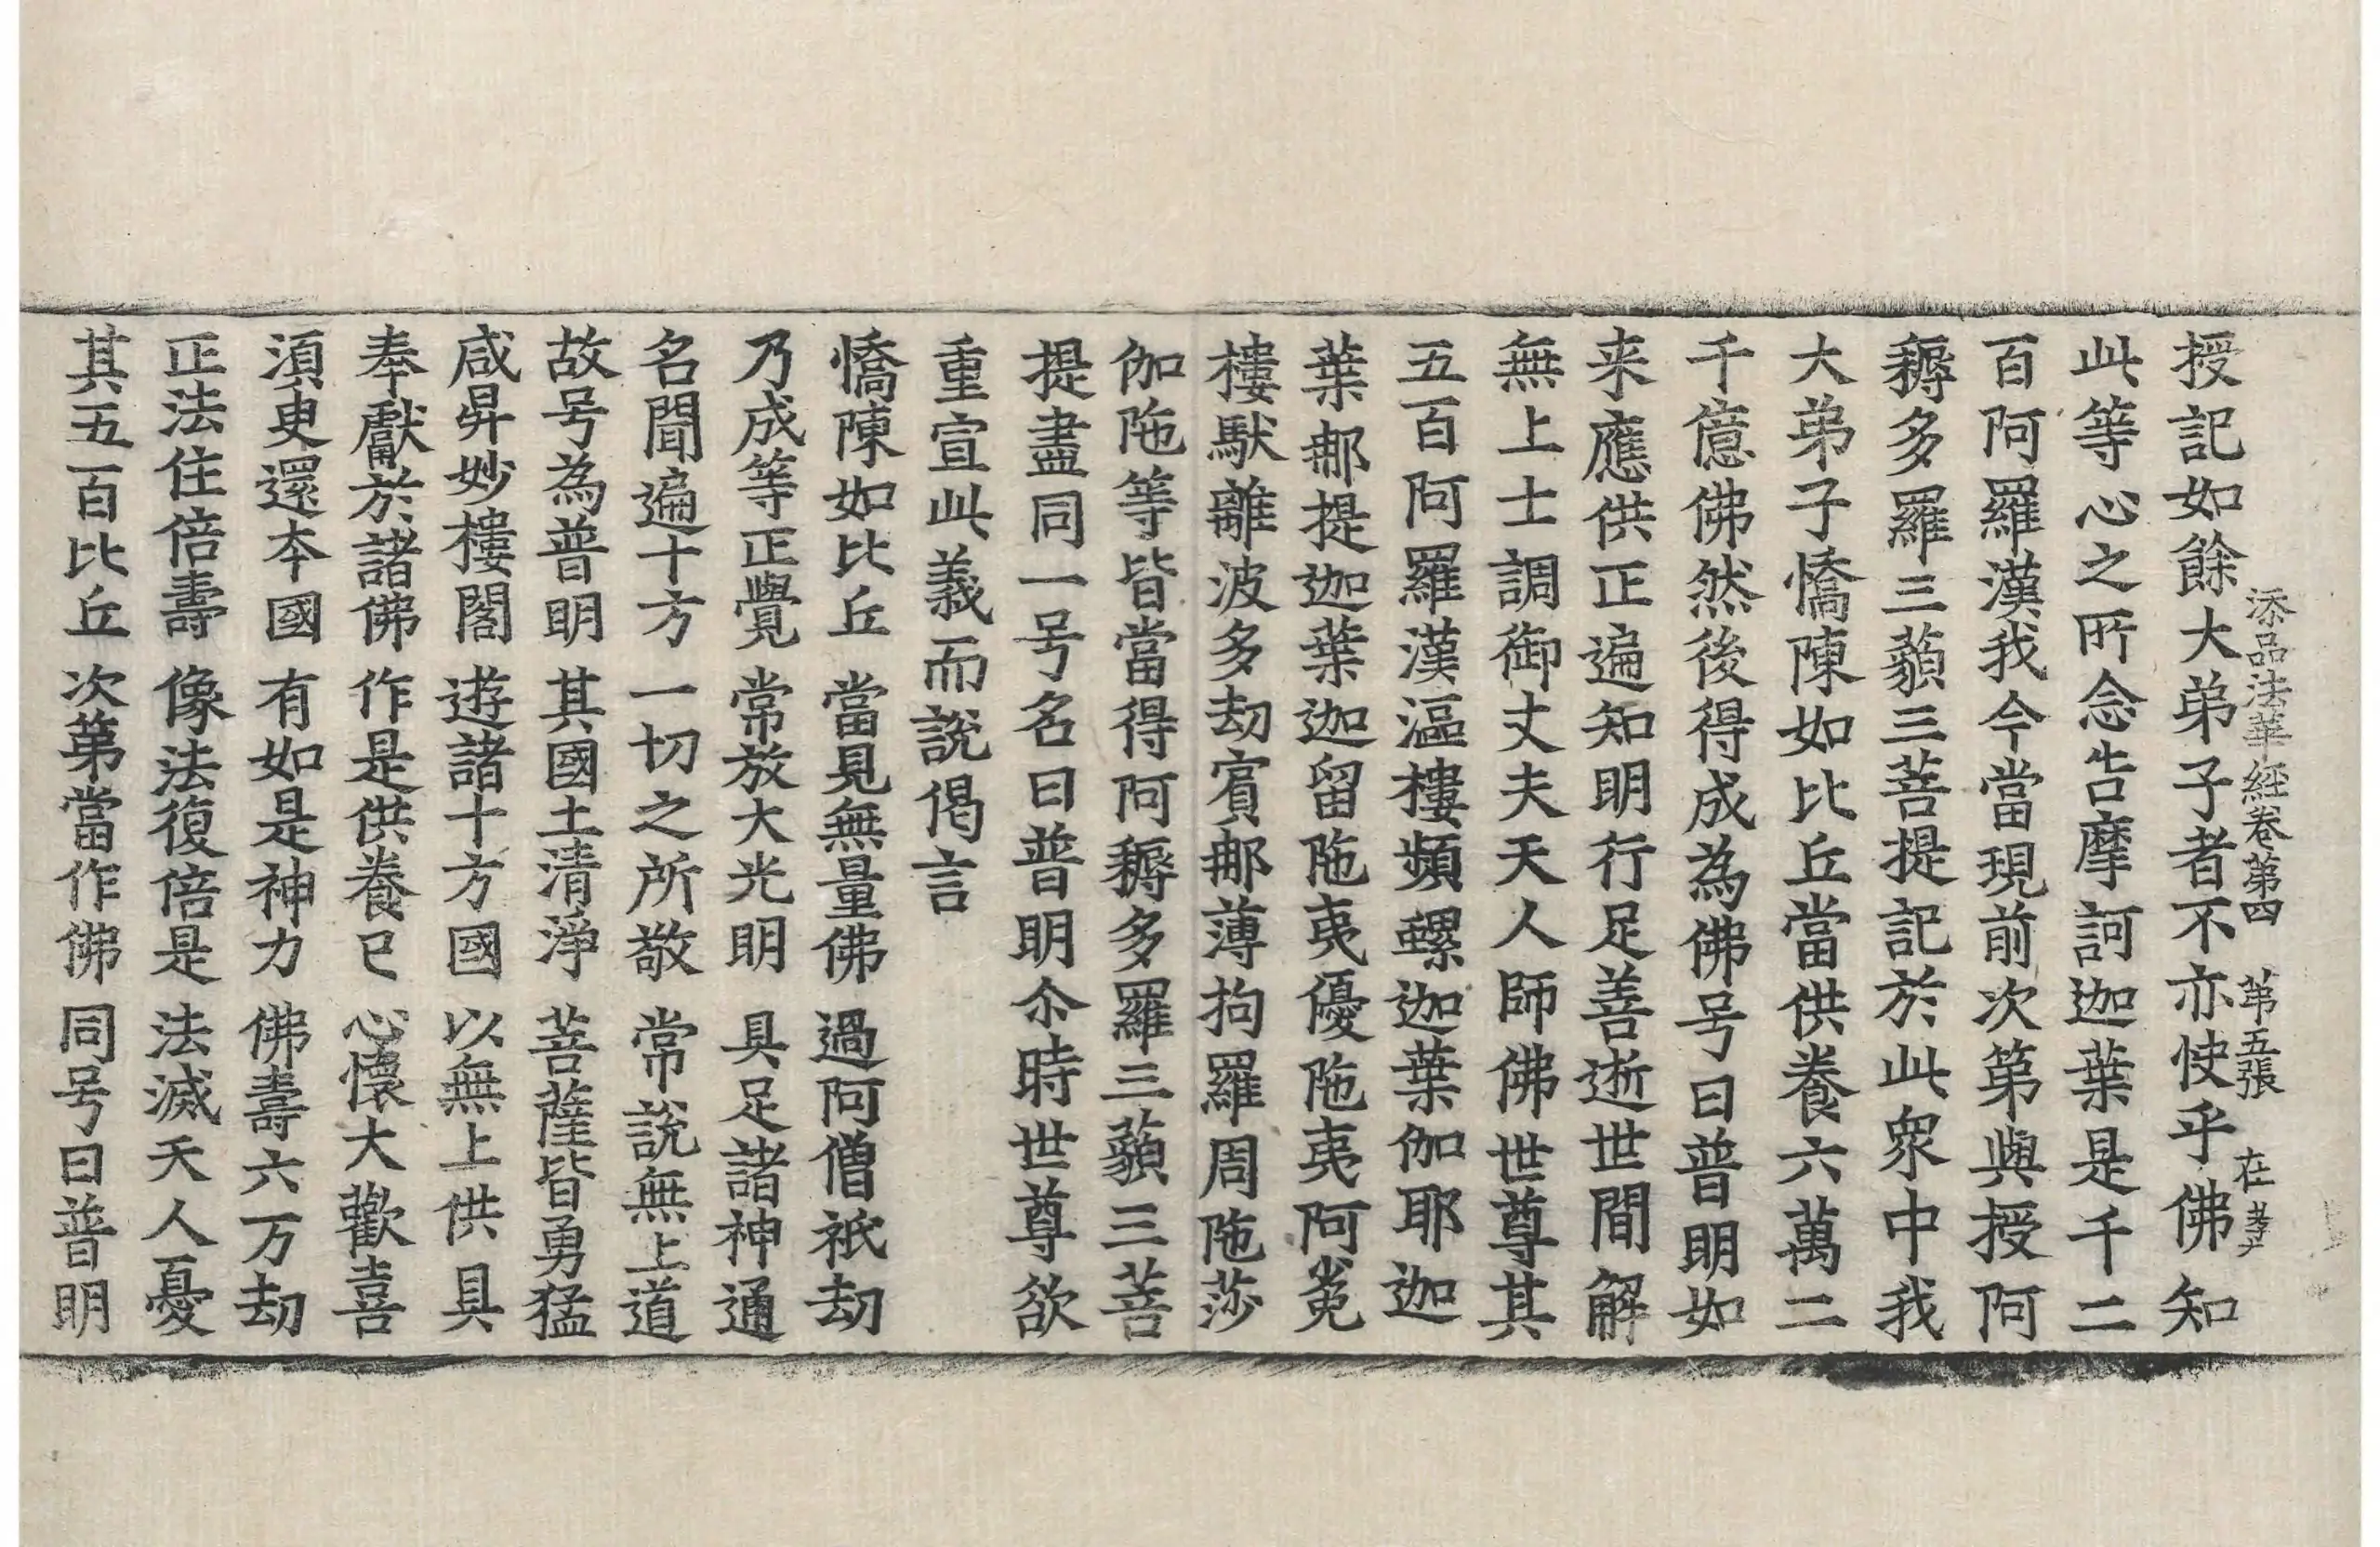 添品法華經卷第四 第五張 在
授記如餘大弟子者不亦快乎佛知
此等心之所念告摩訶迦葉是千二
百阿羅漢我今當現前次第與授阿
耨多羅三藐三菩提記於此衆中我
大弟子憍陳如比丘當供養六萬二
千億佛然後得成為佛号曰普明如
来應供正遍知明行足善逝世間解
無上士調御丈夫天人師佛世尊其
五百阿羅漢漚樓頻螺迦葉伽耶迦
葉那提迦葉迦留陁夷優陁夷阿㝹
樓馱離波多劫賓那薄拘羅周陁莎
伽陁等皆當得阿耨多羅三藐三菩
提盡同一号名曰普明尒時世尊欲
重宣此義而說偈言
憍陳如比丘 當見無量佛 過阿僧祇劫
乃成等正覺 常放大光明 具足諸神通
名聞遍十方 一切之所敬 常說無上道
故号為普明 其國土清淨 菩薩皆勇猛
咸昇妙樓閣 遊諸十方國 以無上供具
奉獻於諸佛 作是供養已 心懷大歡喜
須臾還本國 有如是神力 佛壽六万劫
正法住倍壽 像法復倍是 法滅天人憂
其五百比丘 次第當作佛 同号曰普明